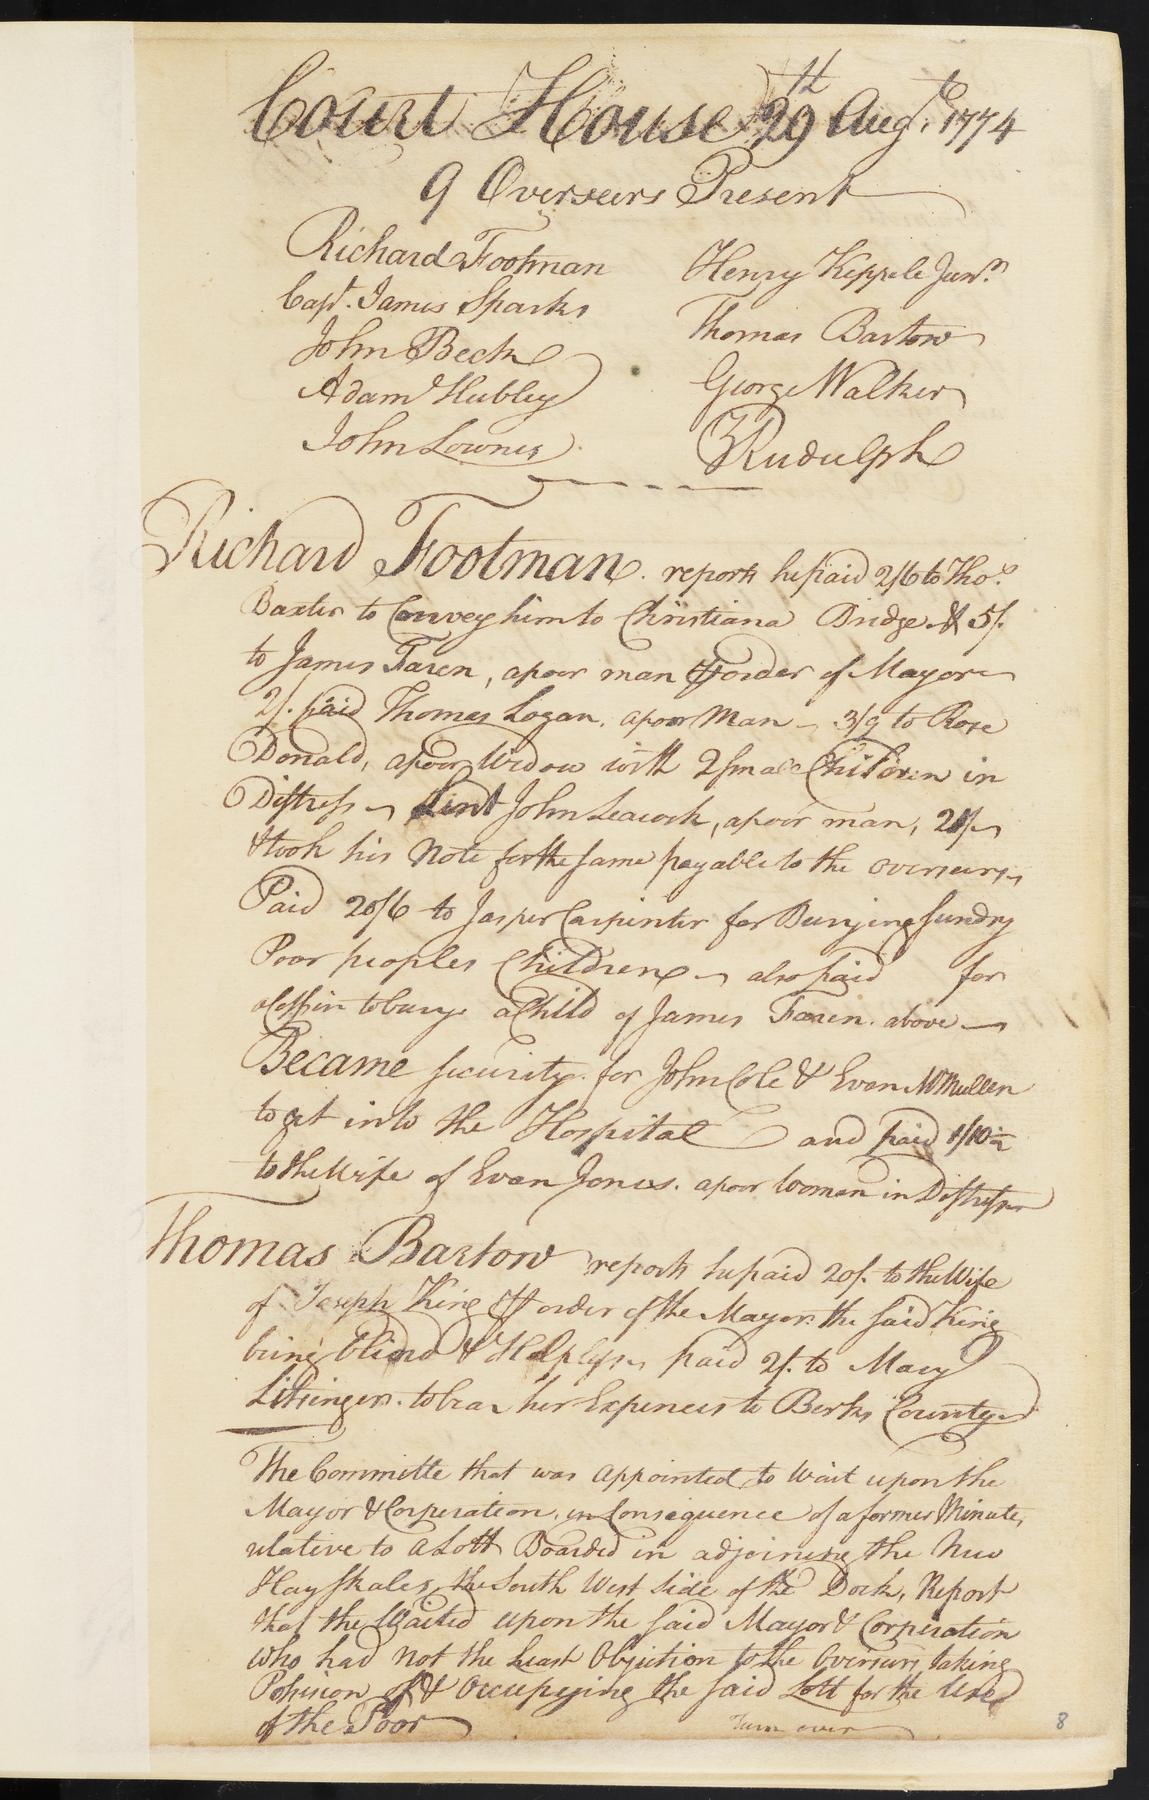 Court House 29th Augt. 1774
9 Overseers Present
Richard Footman
Capt. James Sparks
John Beck
Adam Hubley
John Lownes
Henry Keppele Junr.
Thomas Bartow
George Walker
Rudulph
Richard Footman. reports he paid 2/6 to Thos.
Baxter to Convey him to Christiana Bridge & 5/.
to James Faren, a poor man # order of Mayor
2/. paid Thomas Logan. a poor Man 3/9 to Rose
Donald, a poor Widow with 2 small Children in
Distress Lent John Leacock, a poor man, 20/
& took his Note for the same payable to the overseers
Paid 20/6 to Jasper Carpinter for Burying sundry
Poor peoples Children also paid for
a Coffin to bury a Child of James Faren. above
Became security for John Cole & Evan McMullen
to get into the Hospital and paid 1/10½
to the Wife of Evan Jones. a poor Woman in Distress
Thomas Bartow reports he paid 20/. to the Wife
of Joseph King # order of the Mayor. the said King
being blind & Helpless paid 2/. to Mary
Litsinger. to bear her Expences to Berks County
The Committe that was appointed to wait upon the
Mayor & Corperation, in Consequence of a former Minute,
relative to a Lott Boarded in adjoining the New
Hay skales, the South West side of the Dock, Report
that the Waited upon the said Mayor & Corperation
who had not the Least Objection to the Overseers taking
Possesion of & Occupeying the said Lott for the Use
of the Poor
Turn over
8